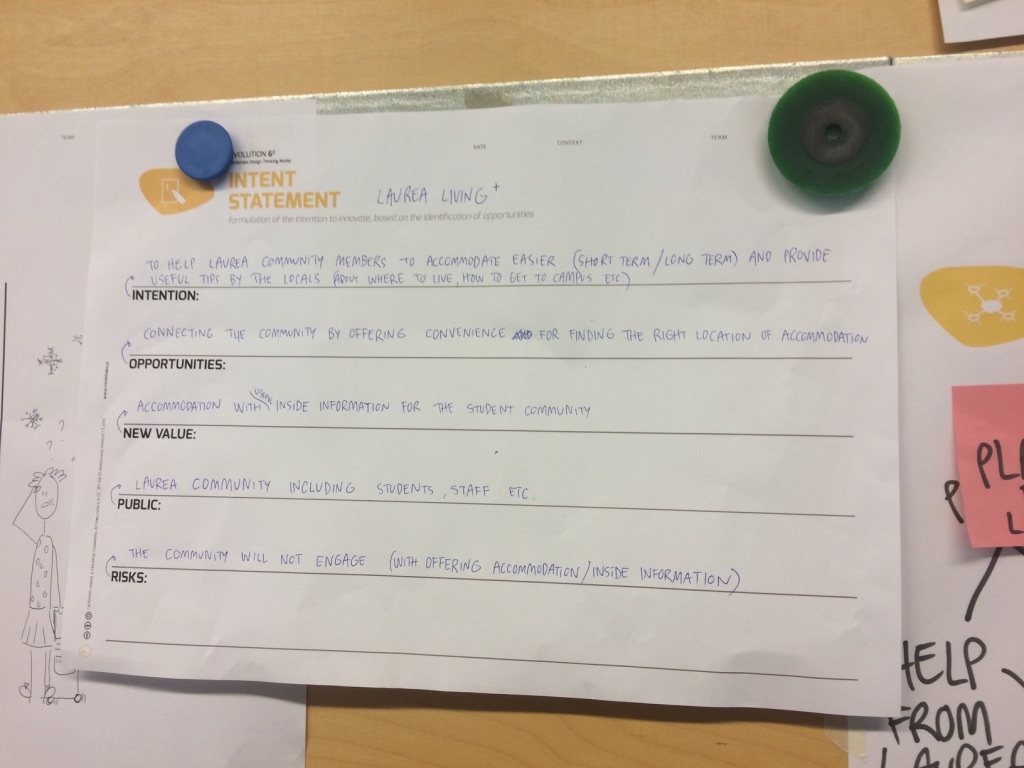 TEAM
DATA
CONTEXT
TEAM
VOLUTION 6²
INTENT
STATEMENT
LAUREA LIVING +
formulation of the intention to innovate, based on the identification of opportunities
TO HELP LAUREA COMMUNITY MEMBERS TO ACCOMMODATE EASIER (SHORT TERM / LONG TERM) AND PROVIDE
USEFUL TIPS BY THE LOCALS (ABOUT WHERE TO LIVE, HOW TO GET TO CAMPUS ETC)
INTENTION:
CONNECTING THE COMMUNITY BY OFFERING CONVENIENCE FOR FINDING THE RIGHT LOCATION OF ACCOMMODATION
OPPORTUNITIES:
ACCOMMODATION WITH USEFUL INSIDE INFORMATION FOR THE STUDENT COMMUNITY
NEW VALUE:
LAUREA COMMUNITY INCLUDING STUDENTS, STAFF ETC.
PUBLIC:
THE COMMUNITY WILL NOT ENGAGE (WITH OFFERING ACCOMMODATION / INSIDE INFORMATION)
RISKS:
? ?
PL
L
P
HELP
FROM
LAUREA